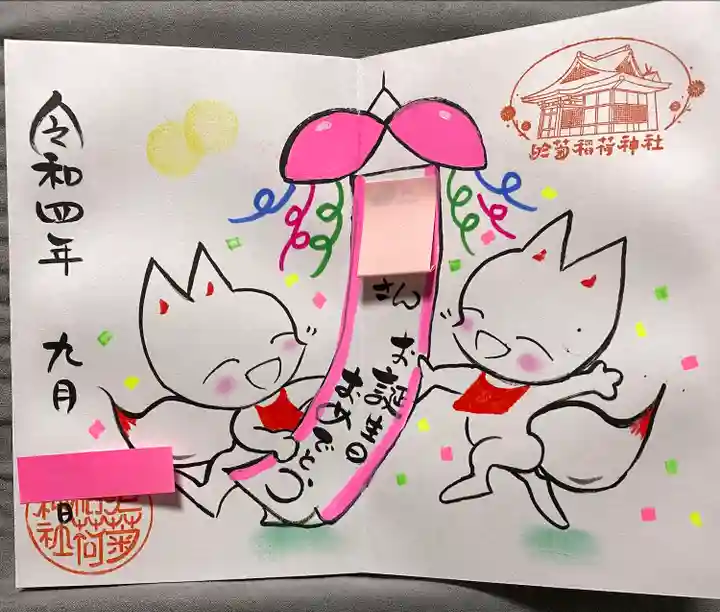 令和四年
九月
日
於菊稲荷神社
さん
お誕生日
おめでとう
於菊稲荷神社